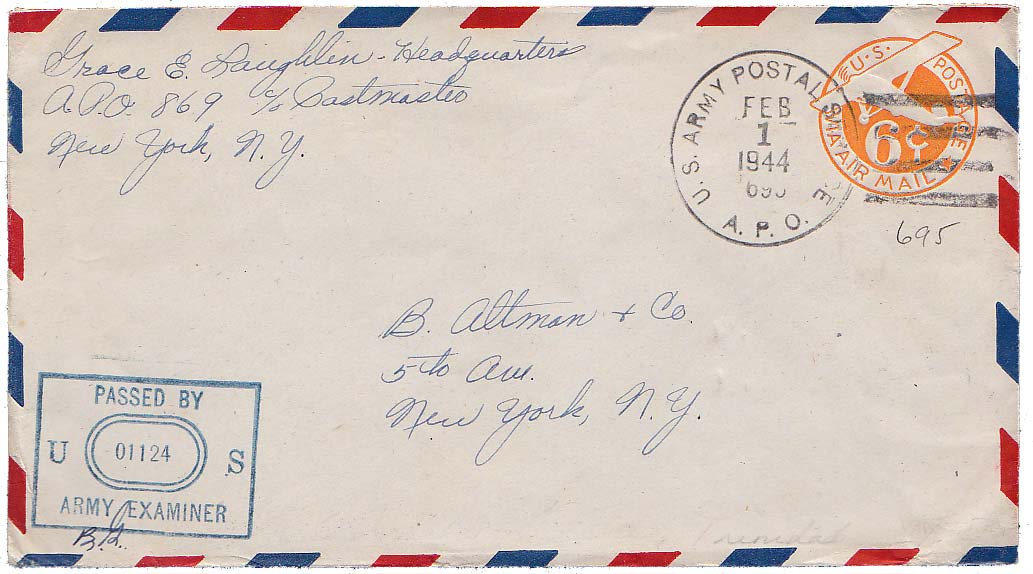 Grace E. Laughlin - Headquarters
A.P.O. 869 c/o Postmaster
New York, N.Y.
U.S. ARMY POSTAL SERVICE
FEB
1
1944
695
A.P.O.
U.S. POSTAGE
6¢
VIA AIR MAIL
695
B. Altman + Co.
5th Ave.
New York, N.Y.
PASSED BY
U 01124 S
ARMY EXAMINER
Trinidad